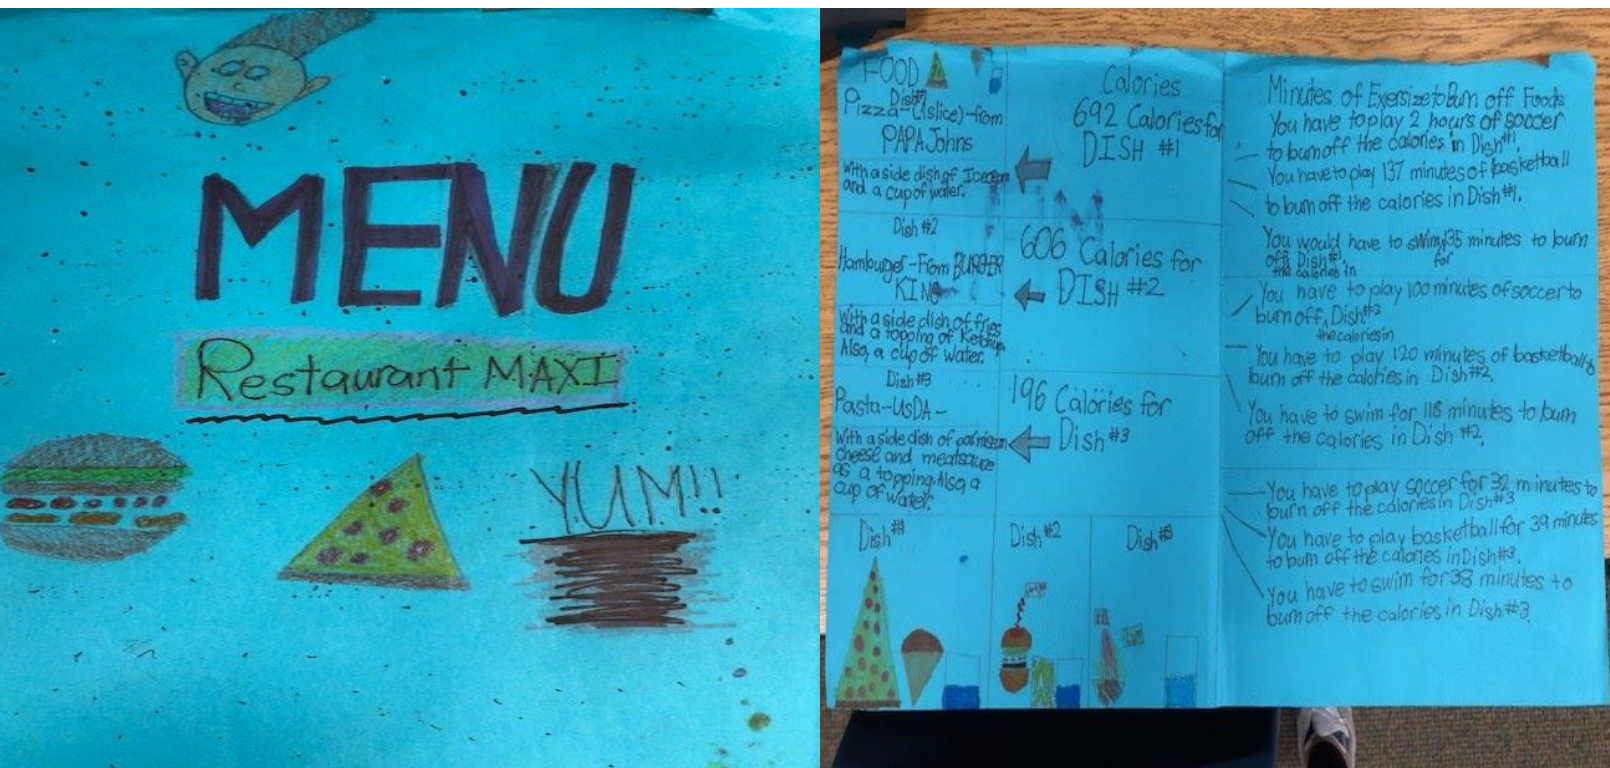 MENU
Restaurant MAXI
YUM!!
FOOD
Dish#1
Pizza-(1slice)-from
PAPA Johns
with a side dish of Icecream
and a cup of water.
Dish #2
Hamburger-From BURGER
KING
With a side dish of fries
and a topping of Ketchup
Also, a cup of water.
Dish#3
Pasta-UsDA-
With a side dish of
cheese and meatsauce
as a topping. Also, a
cup of water.
Calories
692 Calories for
DISH #1
606 Calories for
DISH #2
196 Calories for
Dish #3
Minutes of Exersize to Burn off Foods
You have to play 2 hours of soccer
to burn off the calories in Dish#1.
You have to play 137 minutes of basketball
to burn off the calories in Dish#1.
You would have to swim 135 minutes to burn
off Dish#1. for
the calories in
You have to play 100 minutes of soccer to
burn off, Dish#2
the calories in
You have to play 120 minutes of basketball to
burn off the calories in Dish#2.
You have to swim for 118 minutes to burn
off the calories in Dish #2.
You have to play soccer for 32 minutes to
burn off the calories in Dish#3
You have to play basketball for 39 minutes
to burn off the calories in Dish#3.
You have to swim for 38 minutes to
burn off the calories in Dish#3.
Dish#1
Dish#2
Dish#3